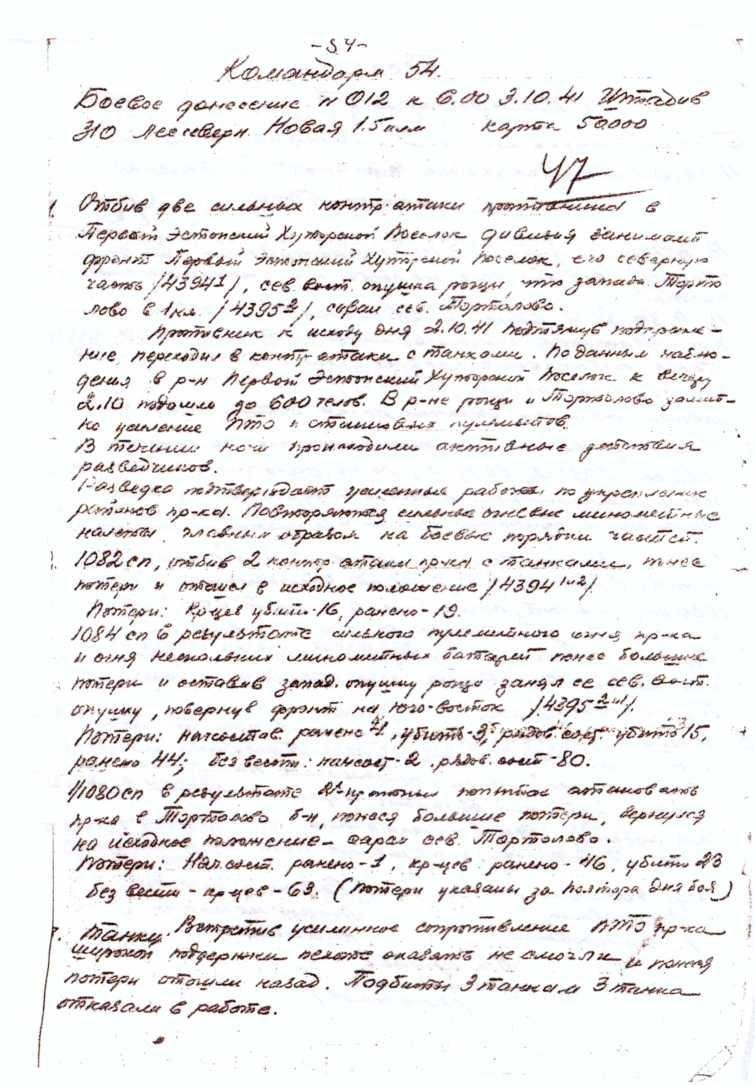 -54-
Командарм 54.
Боевое донесение №012 к 6.00 3.10.41 Штадив
310 лес севери. Новая 1.5 клм карта 50000
47
1. Отбив две сильных контр-атаки противника в
Первый Эстонский Хуторской Поселок дивизия занимает
фронт Первый Эстонский Хуторской Поселок, его северную
часть /4394 1/, сев. вост. опушка рощи, что западн. Торто
лово в 1 км. /4395 2/, сараи сев. Тортолово.
Противник к исходу дня 2.10.41 подтянув подкрепле-
ние, переходил в контр-атаки с танками. По данным наблю-
дения в р-н Первый Эстонский Хуторской Поселок к вечеру
2.10 подошло до 600 челов. В р-не рощи и Тортолово замет-
но усиление ПТО и станковых пулеметов.
В течении ночи происходили активные действия
разведчиков.
Разведка подтверждает усиленные работы по укреплению
районов пр-ка. Повторяются сильные огневые минометные
налеты, главным образом на боевые порядки частей.
2. 1082 сп, отбив 2 контр-атаки пр-ка с танками, понес
потери и отошел в исходное положение /4394 1и2/.
Потери: Кр-цев убит-16, ранено-19.
1084 сп в результате сильного пулеметного огня пр-ка
и огня нескольких минометных батарей понес большие
потери и оставив запад. опушку рощи занял ее сев. вост.
опушку, повернув фронт на Юго-восток /4395/.
Потери: начсостав ранено, убито-3, рядов. сост. убито 15,
ранено 44; без вести: начсост-2, рядов. сост-80.
1080 сп в результате попыток атаковать
пр-ка в Тортолово б-н, понеся большие потери, вернулся
на исходное положение-сараи сев. Тортолово.
Потери: Нач. сост. ранено-1, кр-цев: ранено-46, убиты 23
без вести-кр-цев-63. (потери указаны за полтора дня боя)
3. Танки. Встретив усиленное сопротивление ПТО пр-ка
широкой поддержки пехоте оказать не смогли и понеся
потери отошли назад. Подбиты 3 танка и 3 танка
отказали в работе.